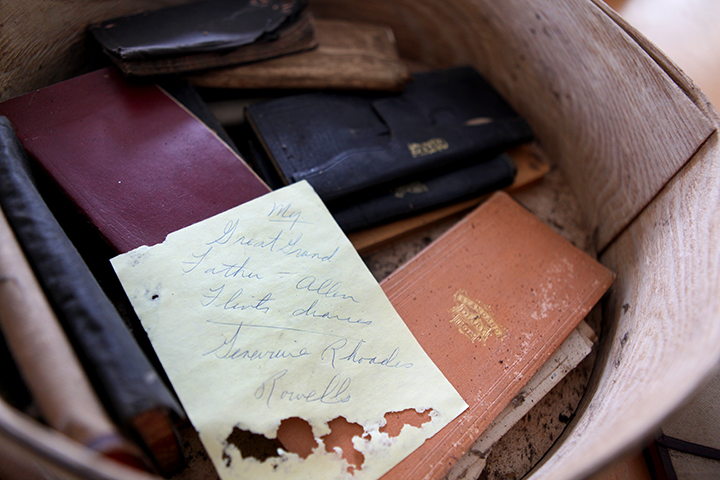 My
Great Grand
Father - Allen
Flints diaries
Genevieve Rhoades
Rowells